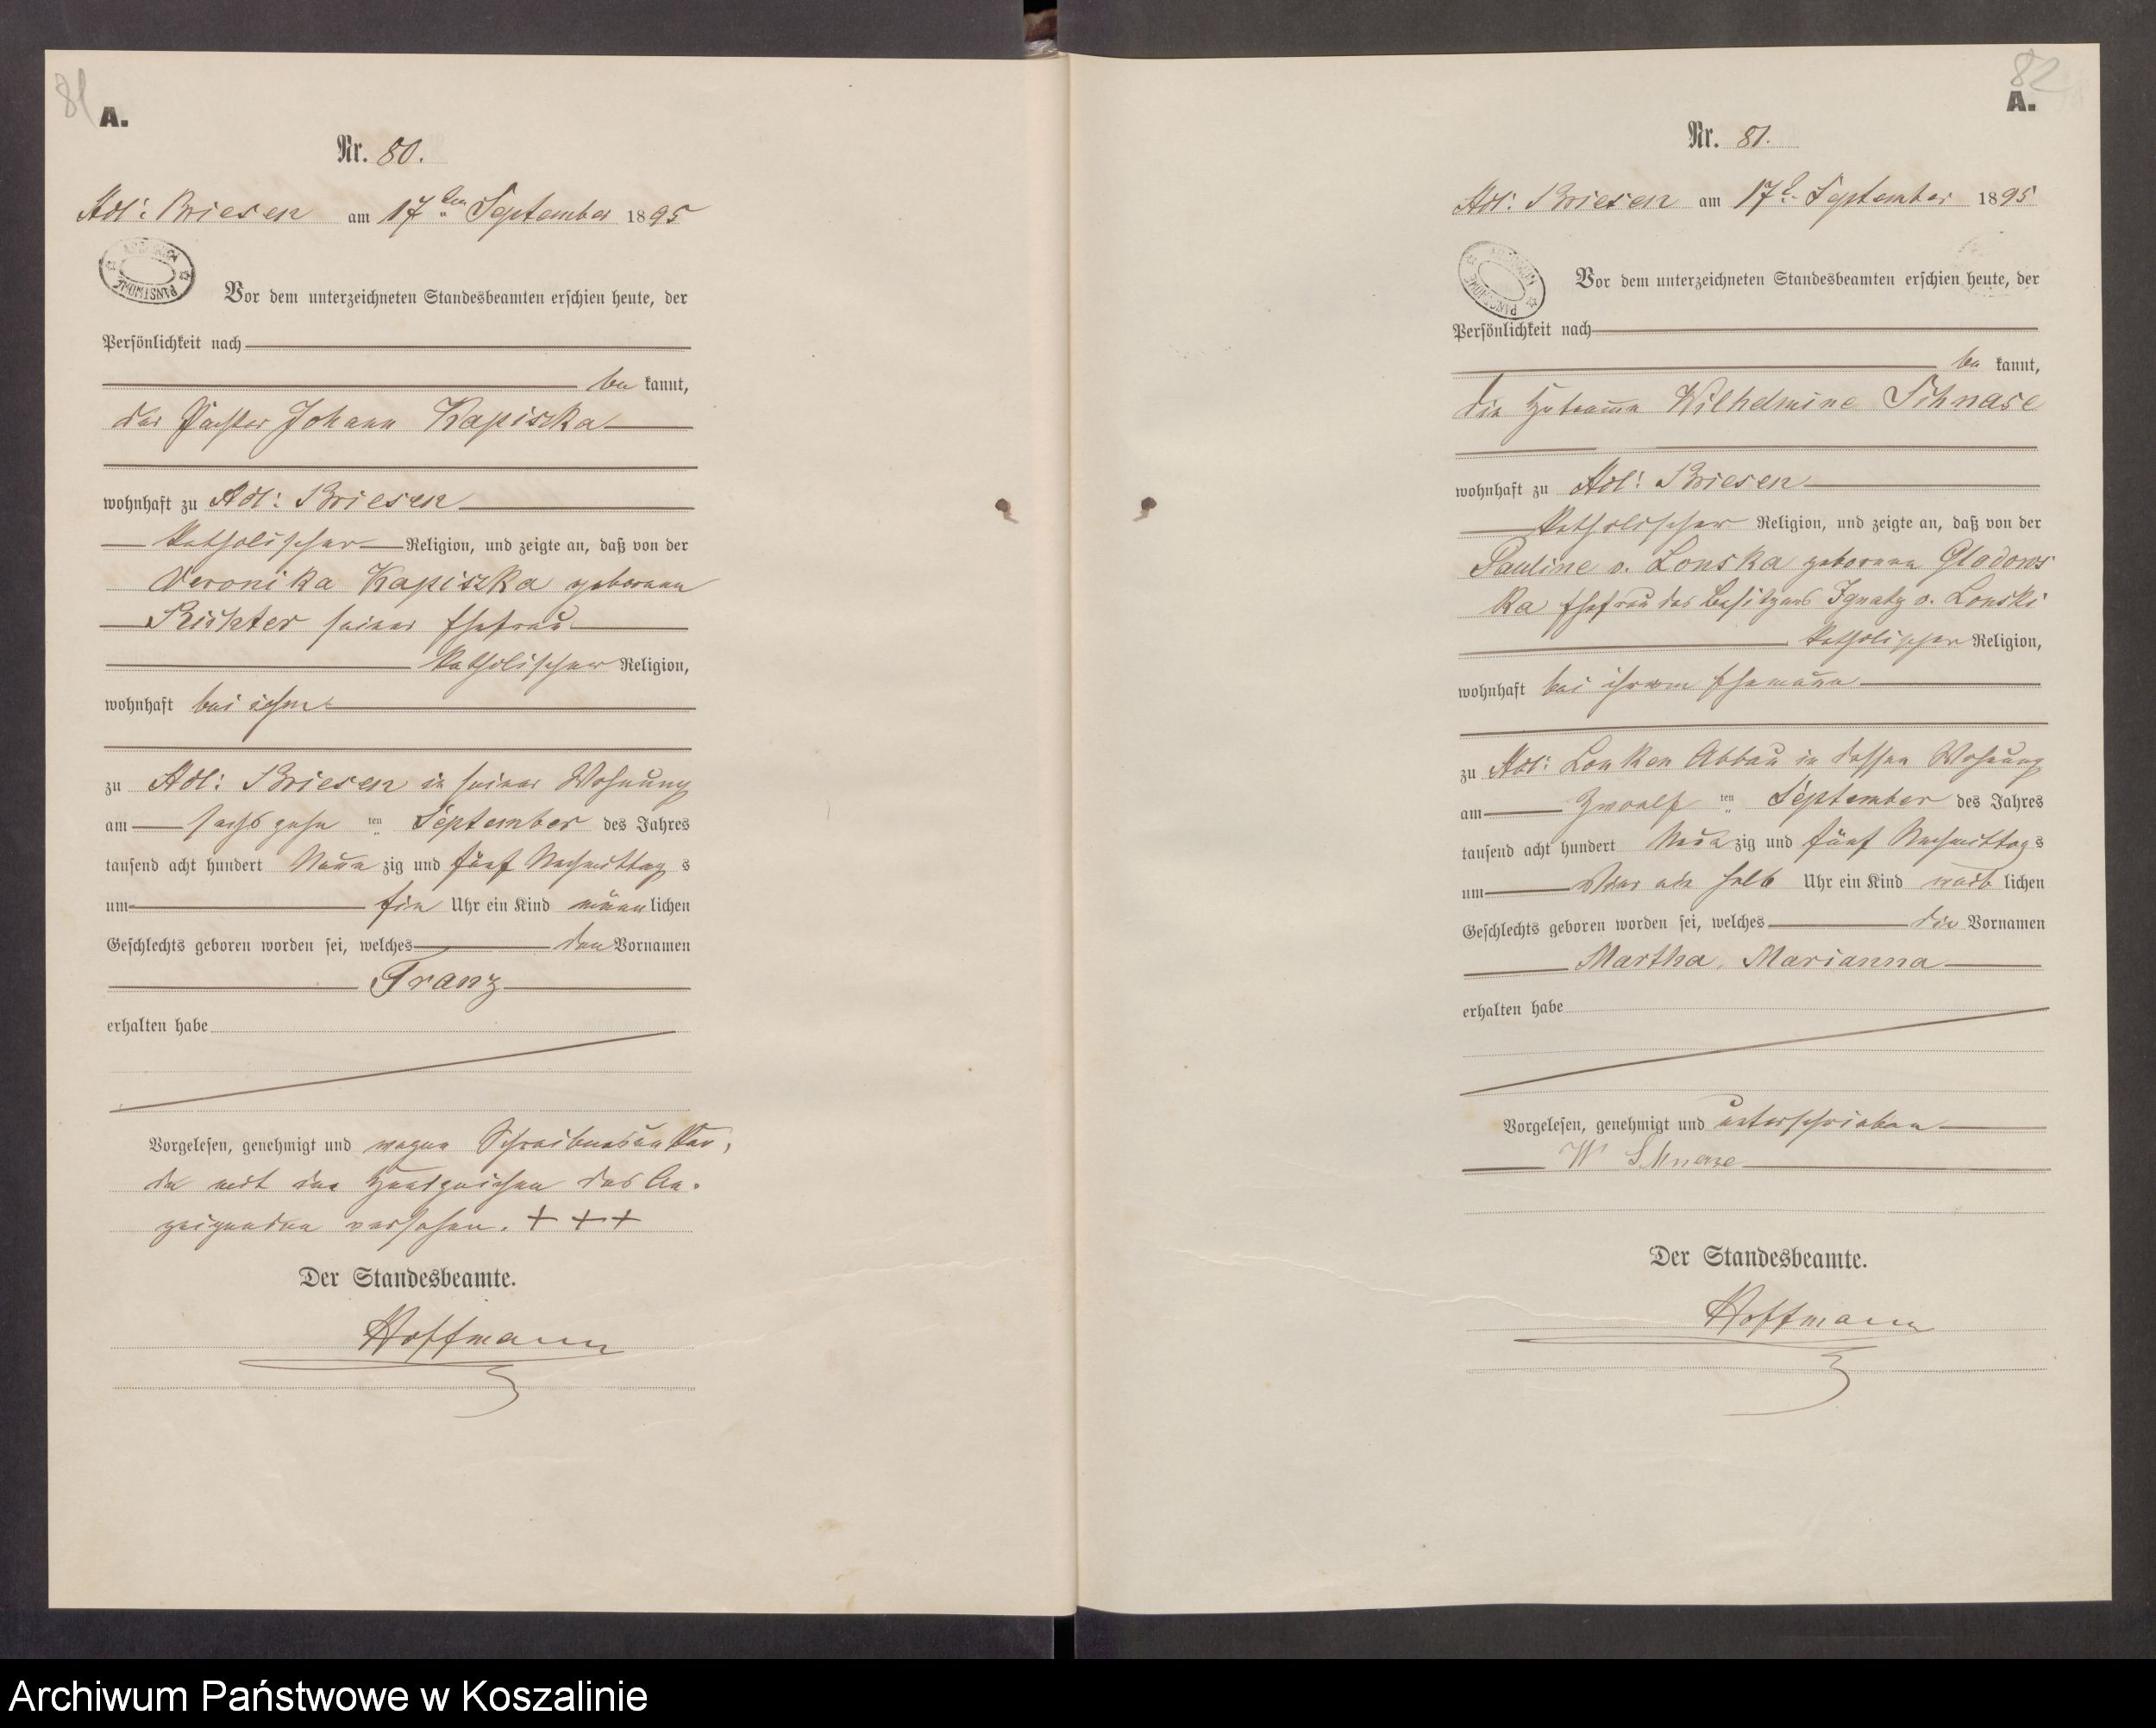 81
A.
Nr. 80.
Adl: Briesen am 17ten September 1895
Vor dem unterzeichneten Standesbeamten erschien heute, der
Persönlichkeit nach
be kannt,
der Pächter Johann Kapiszka
wohnhaft zu Adl: Briesen
katholischer Religion, und zeigte an, daß von der
Veronika Kapiszka geborenen
Richter seiner Ehefrau
katholischer Religion,
wohnhaft bei ihm
zu Adl: Briesen in seiner Wohnung
am sechszehn ten September des Jahres
tausend acht hundert Neun zig und fünf Nachmittag s
um Ein Uhr ein Kind männ lichen
Geschlechts geboren worden sei, welches den Vornamen
Franz
erhalten habe
Vorgelesen, genehmigt und wegen Schreibensunkun,
de mit den Handzeichen des An-
zeigenden versehen. + + +
Der Standesbeamte.
Hoffmann
82
A.
Nr. 81.
Adl: Briesen am 17t September 1895
Vor dem unterzeichneten Standesbeamten erschien heute, der
Persönlichkeit nach
be kannt,
die Hebamme Wilhelmine Schnase
wohnhaft zu Adl: Briesen
katholischer Religion, und zeigte an, daß von der
Pauline v. Lonska geborenen Glodows
ka Ehefrau des Besitzers Ignatz v. Lonski
katholischer Religion,
wohnhaft bei ihrem Ehemann
zu Adl: Lonken Abbau in dessen Wohnung
am zwoelf ten September des Jahres
tausend acht hundert Neun zig und fünf Nachmittag s
um Vier ein halb Uhr ein Kind weib lichen
Geschlechts geboren worden sei, welches die Vornamen
Martha, Marianna
erhalten habe
Vorgelesen, genehmigt und unterschrieben
W Schnase
Der Standesbeamte.
Hoffmann
Archiwum Państwowe w Koszalinie